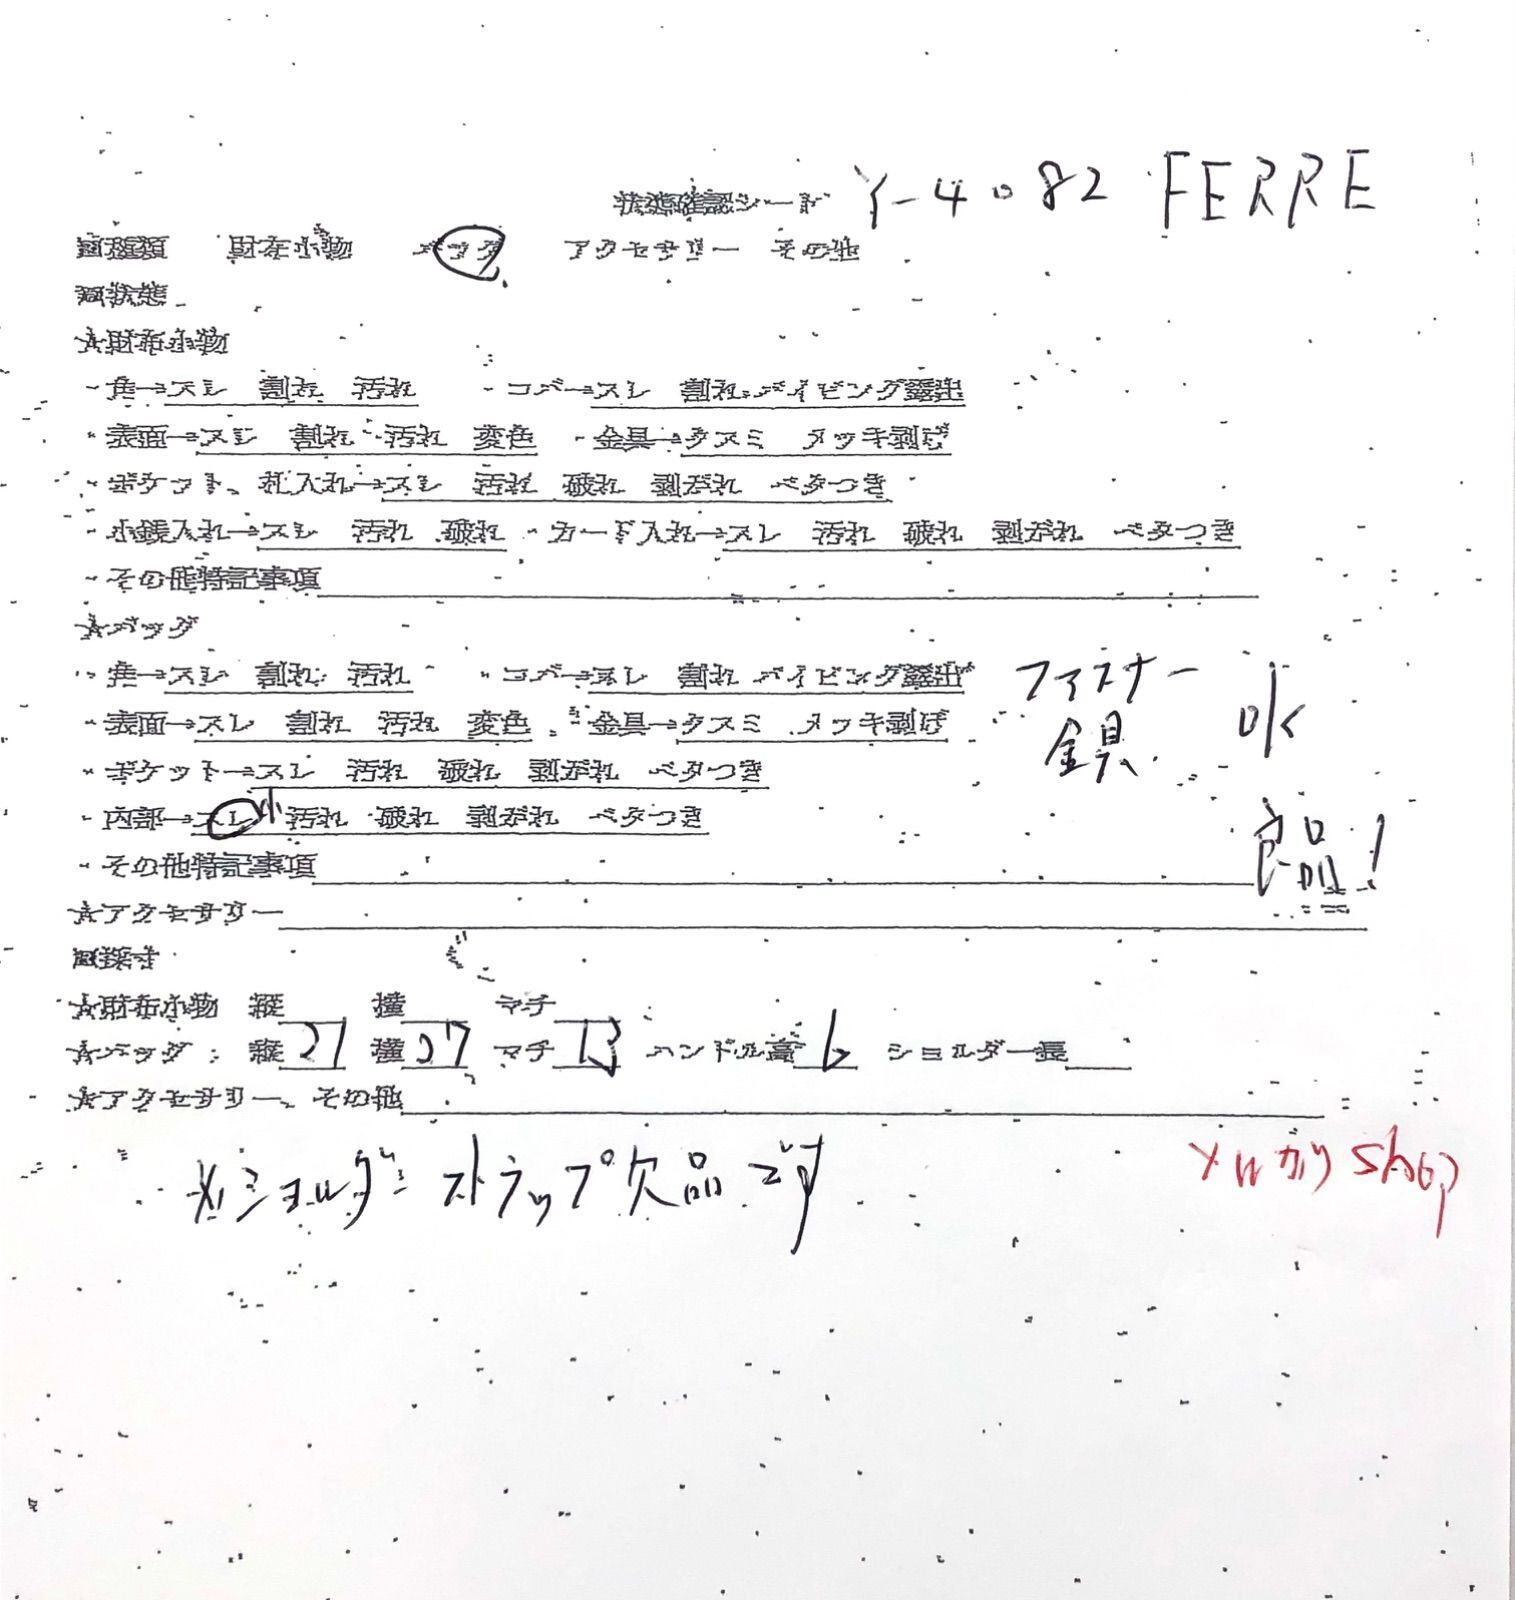 状態確認シート Y-4082 FERRE
■種類 財布小物 バッグ アクセサリー その他
■状態
☆財布小物
・角→スレ 割れ 汚れ ・コバ→スレ 割れ パイピング露出
・表面→スレ 割れ 汚れ 変色 ・金具→クスミ メッキ剥げ
・ポケット、札入れ→スレ 汚れ 破れ 剥がれ ベタつき
・小銭入れ→スレ 汚れ 破れ ・カード入れ→スレ 汚れ 破れ 剥がれ ベタつき
・その他特記事項
☆バッグ
・角→スレ 割れ 汚れ ・コバ→スレ 割れ パイピング露出 ファスナー
・表面→スレ 割れ 汚れ 変色 ・金具→クスミ メッキ剥げ 金具 ok
・ポケット→スレ 汚れ 破れ 剥がれ ベタつき
・内部→スレ 小 汚れ 破れ 剥がれ ベタつき
・その他特記事項 良品!
☆アクセサリー
■採寸
☆財布小物 縦 横 マチ
☆バッグ 縦 21 横 27 マチ 13 ハンドル高 6 ショルダー長
☆アクセサリー、その他
※ショルダーストラップ欠品です
shop